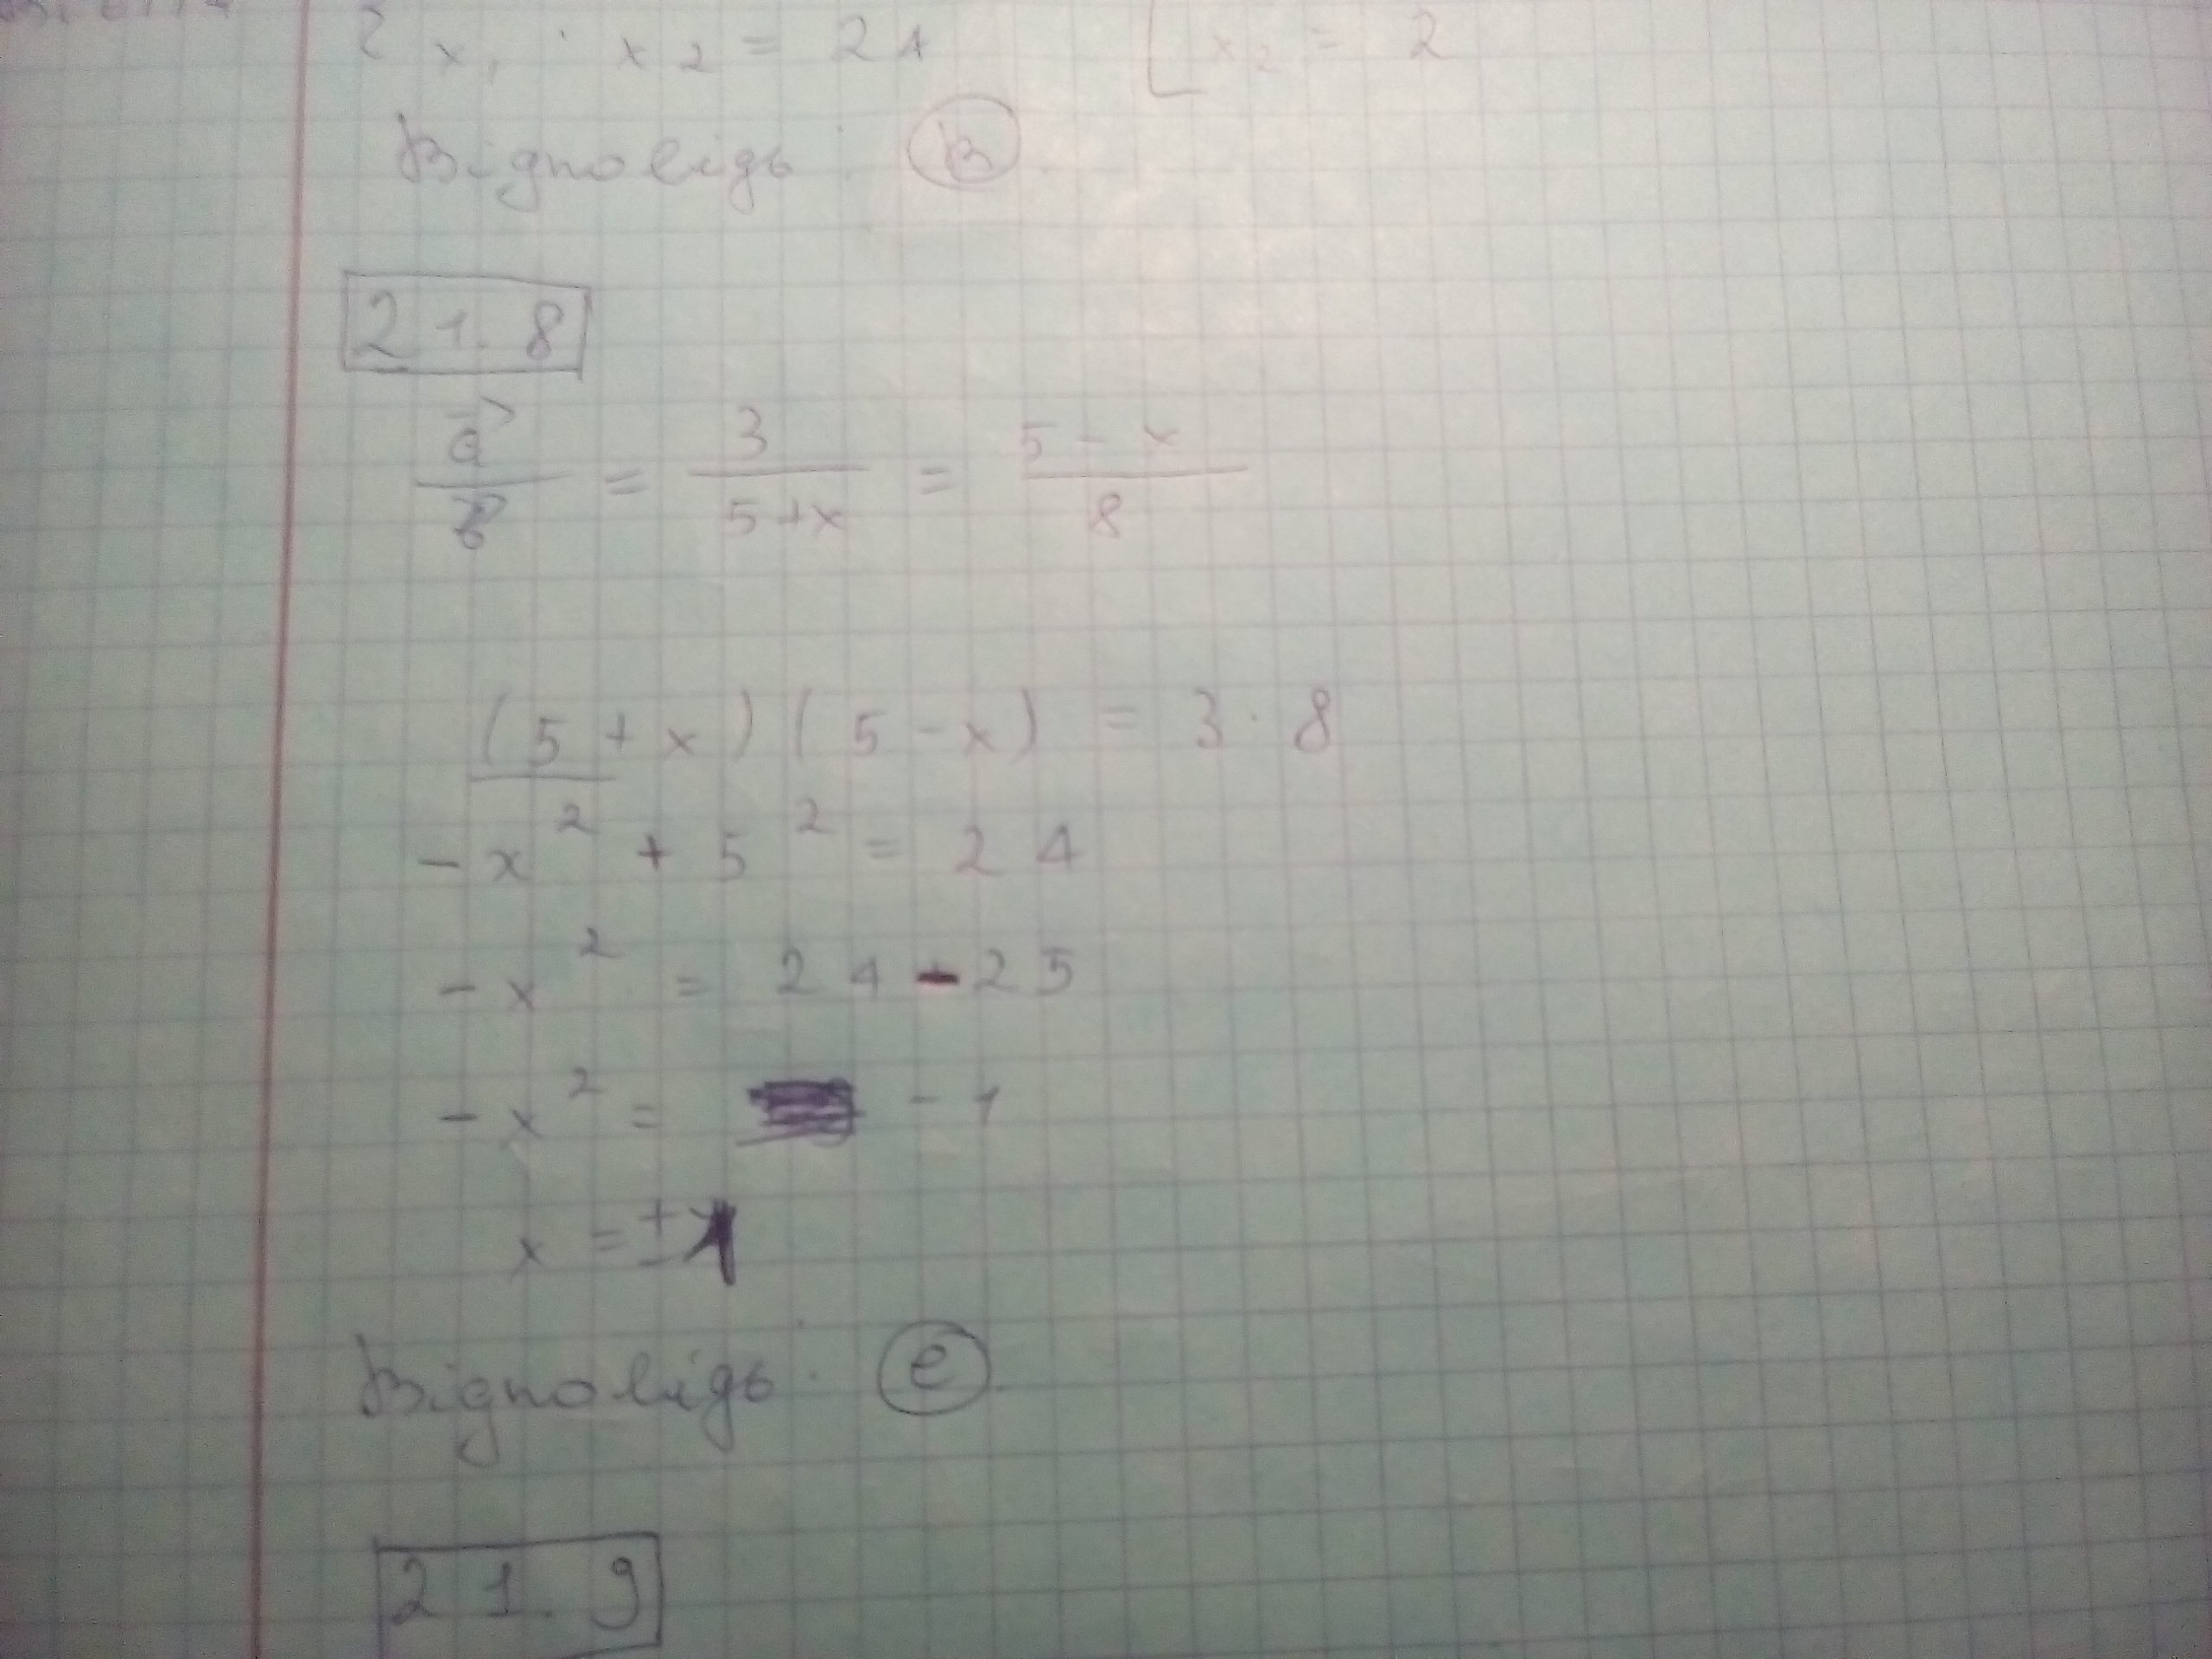 { x₁ · x₂ = 24 [ x₂ = 2
Відповідь: В.
21.8
a⃗/b⃗ = 3/(5+x) = (5-x)/8
(5+x)(5-x) = 3·8
-x² + 5² = 24
-x² = 24-25
-x² = -1
x = ±1
Відповідь: е.
21.9